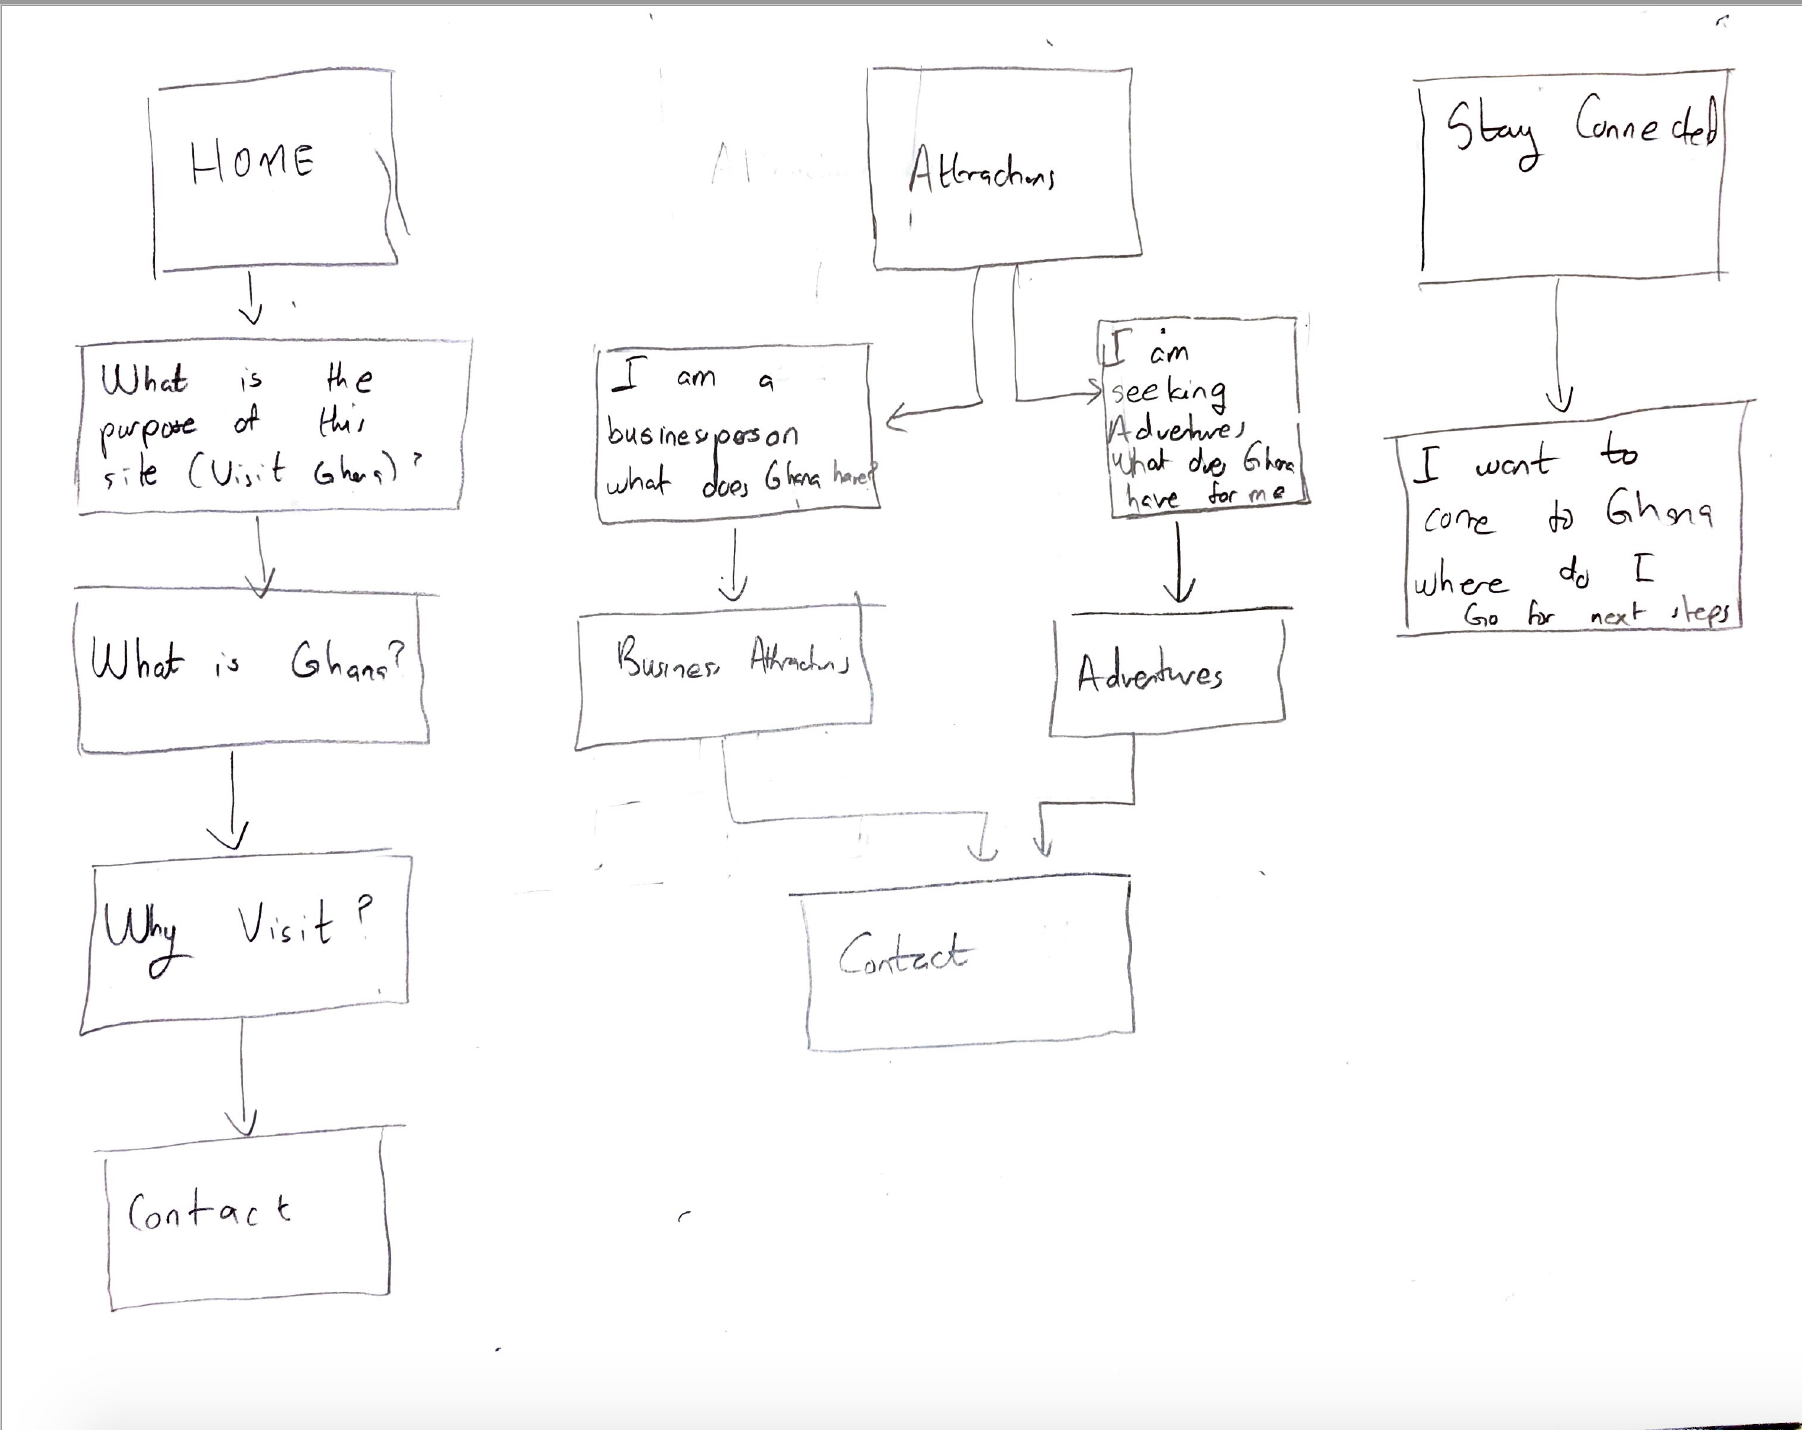 HOME
What is the
purpose of this
site (Visit Ghana)?
What is Ghana?
Why Visit?
Contact
Attractions
I am a
businessperson
what does Ghana have?
Business Attractions
I am
seeking
Adventures
What does Ghana
have for me
Adventures
Contact
Stay Connected
I want to
come to Ghana
where do I
Go for next steps